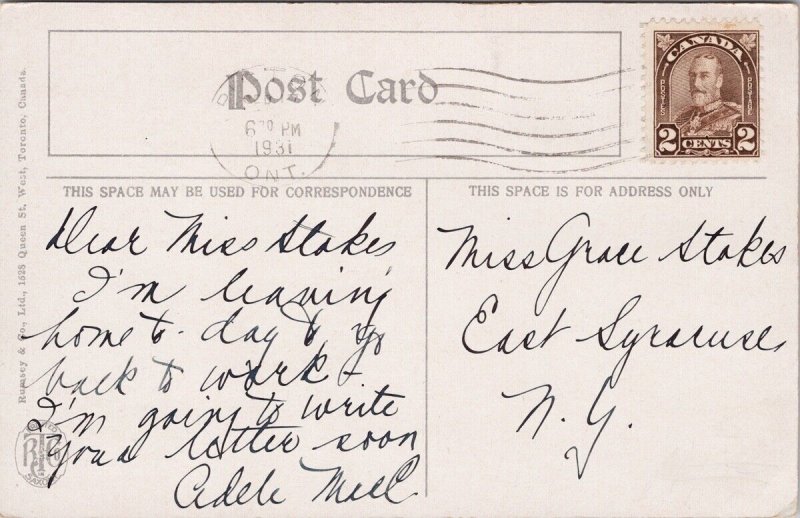 Post Card
CANADA
POSTES POSTAGE
2 CENTS 2
6 30 PM
1931
ONT.
THIS SPACE MAY BE USED FOR CORRESPONDENCE
THIS SPACE IS FOR ADDRESS ONLY
Dear Miss Stokes
I'm leaving
home to-day to go
back to work -
I'm going to write
you a letter soon
Adele
Miss Grace Stokes
East Syracuse,
N. Y.
Rumsey & Co., Ltd., 1528 Queen St. West, Toronto, Canada.